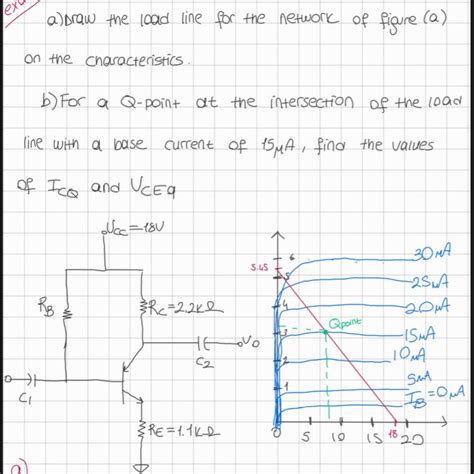 exa
a) Draw the load line for the network of figure (a)
on the characteristics.
b) For a Q-point at the intersection of the load
line with a base current of 15μA, find the values
of ICQ and UCEQ
UCC=18V
RB
RC=2.2kΩ
C2
UO
C1
RE=1.1kΩ
6
5.45
5
4
3
2
1
30μA
25μA
20μA
Qpoint
15μA
10μA
5μA
IB=0μA
0
5
10
15
18
20
a)